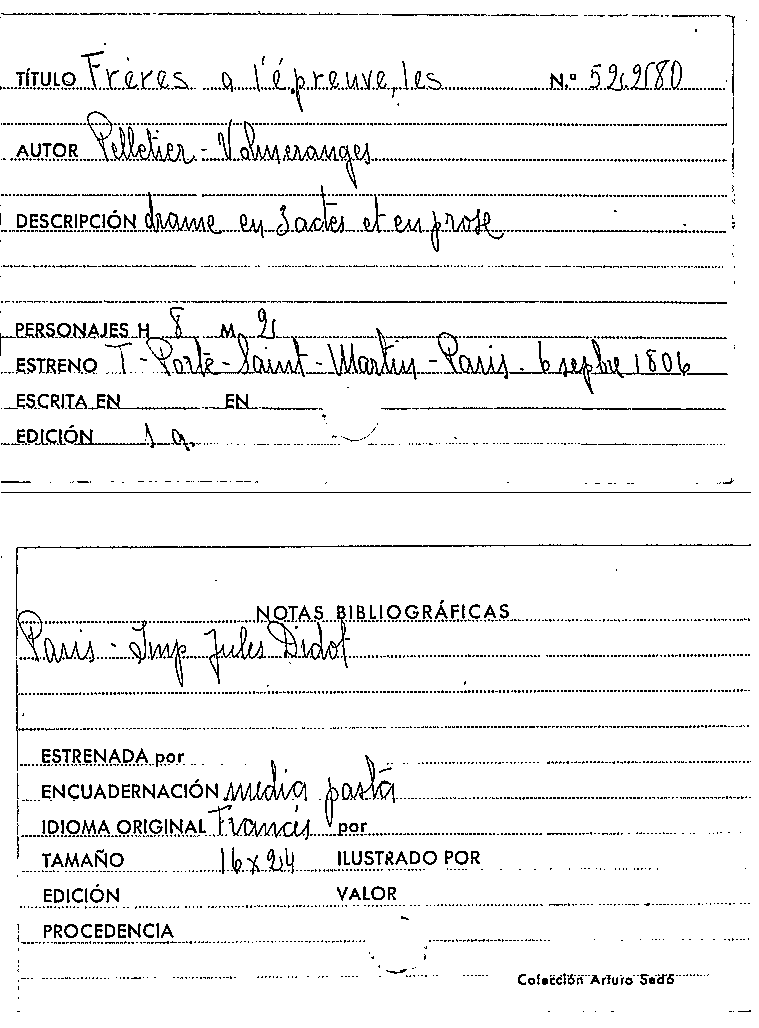 TÍTULO Frères a l'épreuve, les N.º 52.280
AUTOR Pelletier-Volmeranges
DESCRIPCIÓN drame en 3 actes et en prose
PERSONAJES H 8 M 2
ESTRENO T-Porte-Saint-Martin-Paris. 6 sepbre 1806
ESCRITA EN EN
EDICIÓN 1 a.
NOTAS BIBLIOGRÁFICAS
Paris - Imp Jules Didot
ESTRENADA por
ENCUADERNACIÓN media pasta
IDIOMA ORIGINAL Francés por
TAMAÑO 16x24 ILUSTRADO POR
EDICIÓN VALOR
PROCEDENCIA
Colección Arturo Sedó